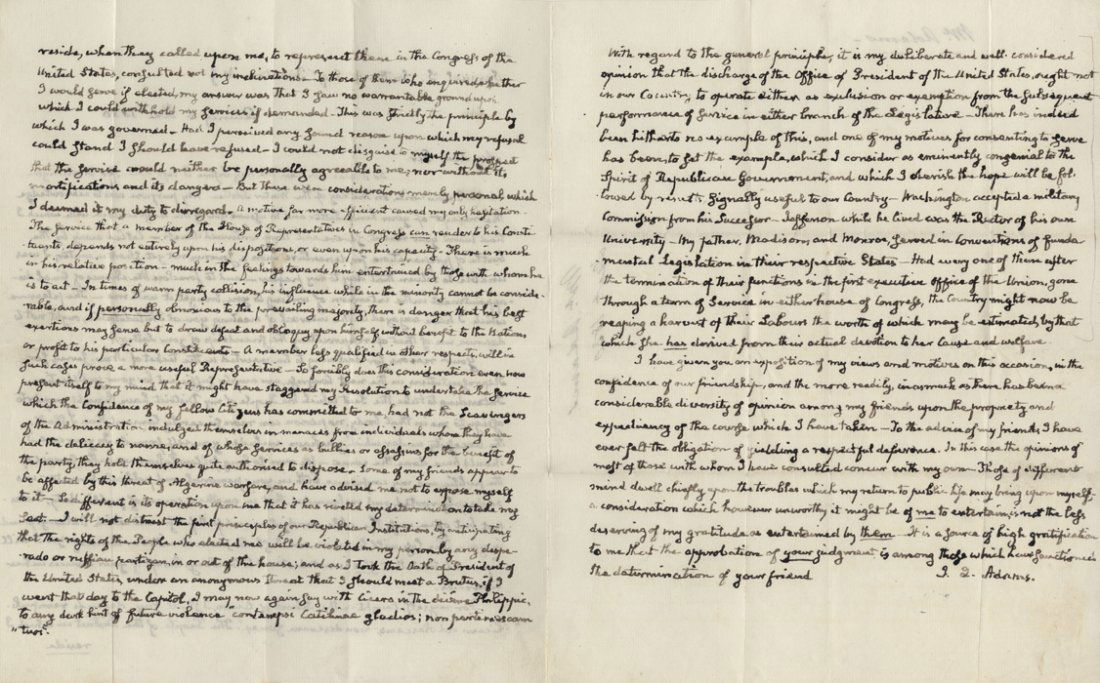 reside, when they called upon me, to represent them in the Congress of the
United States, consulted not my inclinations — To those of them who inquired whether
I would serve if elected, my answer was that I saw no warrantable ground upon
which I could withhold my services if demanded — This was strictly the principle by
which I was governed — Had I perceived any sound reason upon which my refusal
could stand I should have refused — I could not disguise to myself the prospect
that the service would neither be personally agreeable to me, nor without its
mortifications and its dangers — But these were considerations merely personal, which
I deemed it my duty to disregard. A motive far more efficient caused my only hesitation.
The service that a member of the House of Representatives in Congress can render to his Consti-
tuents depends not entirely upon his dispositions, or even upon his capacity — There is much
in his relative position — much in the feelings towards him entertained by those with whom he
is to act — In times of warm party collision, his influence while in the minority cannot be conside-
rable, and if personally obnoxious to the prevailing majority, there is danger that his best
exertions may serve but to draw defeat and obloquy upon himself without benefit to the Nation,
or profit to his particular Constituents — A member less qualified in other respects, will in
such cases prove a more useful Representative — So forcibly does this consideration even now
present itself to my mind that it might have staggered my Resolution to undertake the service
which the Confidence of my fellow Citizens has committed to me, had not the Scavengers
of the Administration indulged themselves in menaces from individuals whom they have
had the delicacy to name, and of whose services as bullies or assassins for the benefit of
the party, they hold themselves quite authorised to dispose. Some of my friends appear to
be affected by this threat of Algerine warfare, and have advised me not to expose myself
to it — So different is its operation upon me that it has riveted my determination to take my
Seat. — I will not distrust the first principles of our Republican Institutions, by anticipating
that the rights of the People who elected me will be violated in my person by any despe-
rado or ruffian partizan, in or out of the house; and as I took the Oath of President of
the United States, under an anonymous threat that I should meet a Brutus, if I
went that day to the Capitol, I may now again say with Cicero in the divine Philippic,
to any dark hint of future violence "contempsi Catilinae gladios; non pertimescam
"tuos".
With regard to the general principle, it is my deliberate and well considered
opinion that the discharge of the Office of President of the United States, ought not
in our Country to operate either as exclusion or exemption from the subsequent
performance of service in either branch of the Legislature — There has indeed
been hitherto no example of this, and one of my motives for consenting to serve
has been, to set the example, which I consider as eminently congenial to the
Spirit of Republican Government, and which I cherish the hope will be fol-
lowed by results signally useful to our Country — Washington accepted a military
Commission from his Successor — Jefferson while he lived was the Rector of his own
University — My father, Madison, and Monroe, served in Conventions of funda-
mental Legislation in their respective States — Had every one of them after
the termination of their functions in the first executive Office of the Union, gone
through a term of Service in either house of Congress, the Country might now be
reaping a harvest of their Labours the worth of which may be estimated, by that
which she has derived from their actual devotion to her Cause and welfare
I have given you an exposition of my views and motives on this occasion, in the
confidence of our friendship, and the more readily, inasmuch as there has been a
considerable diversity of opinion among my friends upon the propriety and
expediency of the course which I have taken — To the advice of my friends, I have
ever felt the obligation of yielding a respectful deference. In this case the opinions of
most of those with whom I have consulted concur with my own — Those of different
mind dwell chiefly upon the troubles which my return to public life may bring upon myself —
a consideration which however unworthy it might be of me to entertain, is not the less
deserving of my gratitude as entertained by them — It is a source of high gratification
to me that the approbation of your judgment is among those which have sanctioned
the determination of your friend
J. Q. Adams.